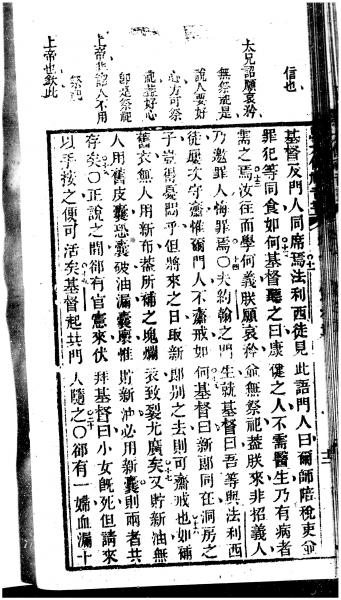 信也
太兄詔願哀矜
無祭祀是
說人要好
心方可祭
好心
祭祀
上帝非說人不用
祭祀
上帝也欽此
基督反門人同席焉法利西徒見此語門人曰爾師陪稅吏並
罪犯等同食如何基督聽之曰康健之人不需醫生乃有病者
需之焉汝往而學何義朕願哀矜並無祭祀蓋朕來非招義人
乃邀罪人悔罪焉○夫約翰之門生就基督曰吾等與法利西
徒屢次守齋惟爾門人不齋戒如何基督曰新郎同在洞房之
子豈得憂悶乎但將來之日取新郎別之去則可齋戒也如補
舊衣無人用新布蓋所補之塊爛衣致裂尤廣矣又貯新油無
人用舊皮囊恐囊破油漏囊廢惟貯新油必用新囊則兩者共
存矣○正說之間卻有官憲來伏拜基督曰小女旣死但請來
以手按之便可活矣基督起共門人隨之○卻有一婦血漏十